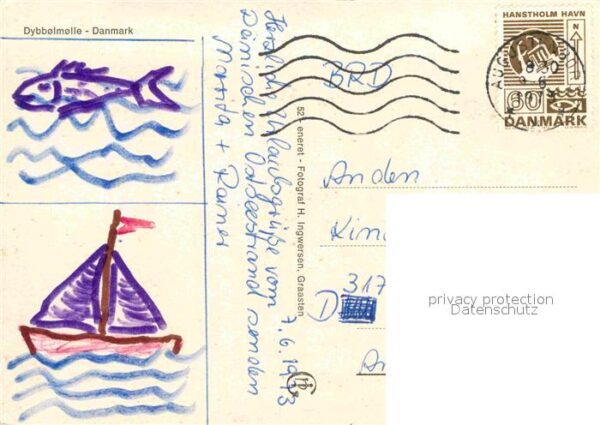 Dybbølmølle - Danmark
Herzliche Urlaubsgrüße vom
Dänischen Ostseestrand senden
Marita + Rainer
7.6.1973
52 - eneret - Fotograf H. Ingwersen, Graasten
BRD
HANSTHOLM HAVN
N
60
DANMARK
An den
Kin
317
D
privacy protection
Datenschutz